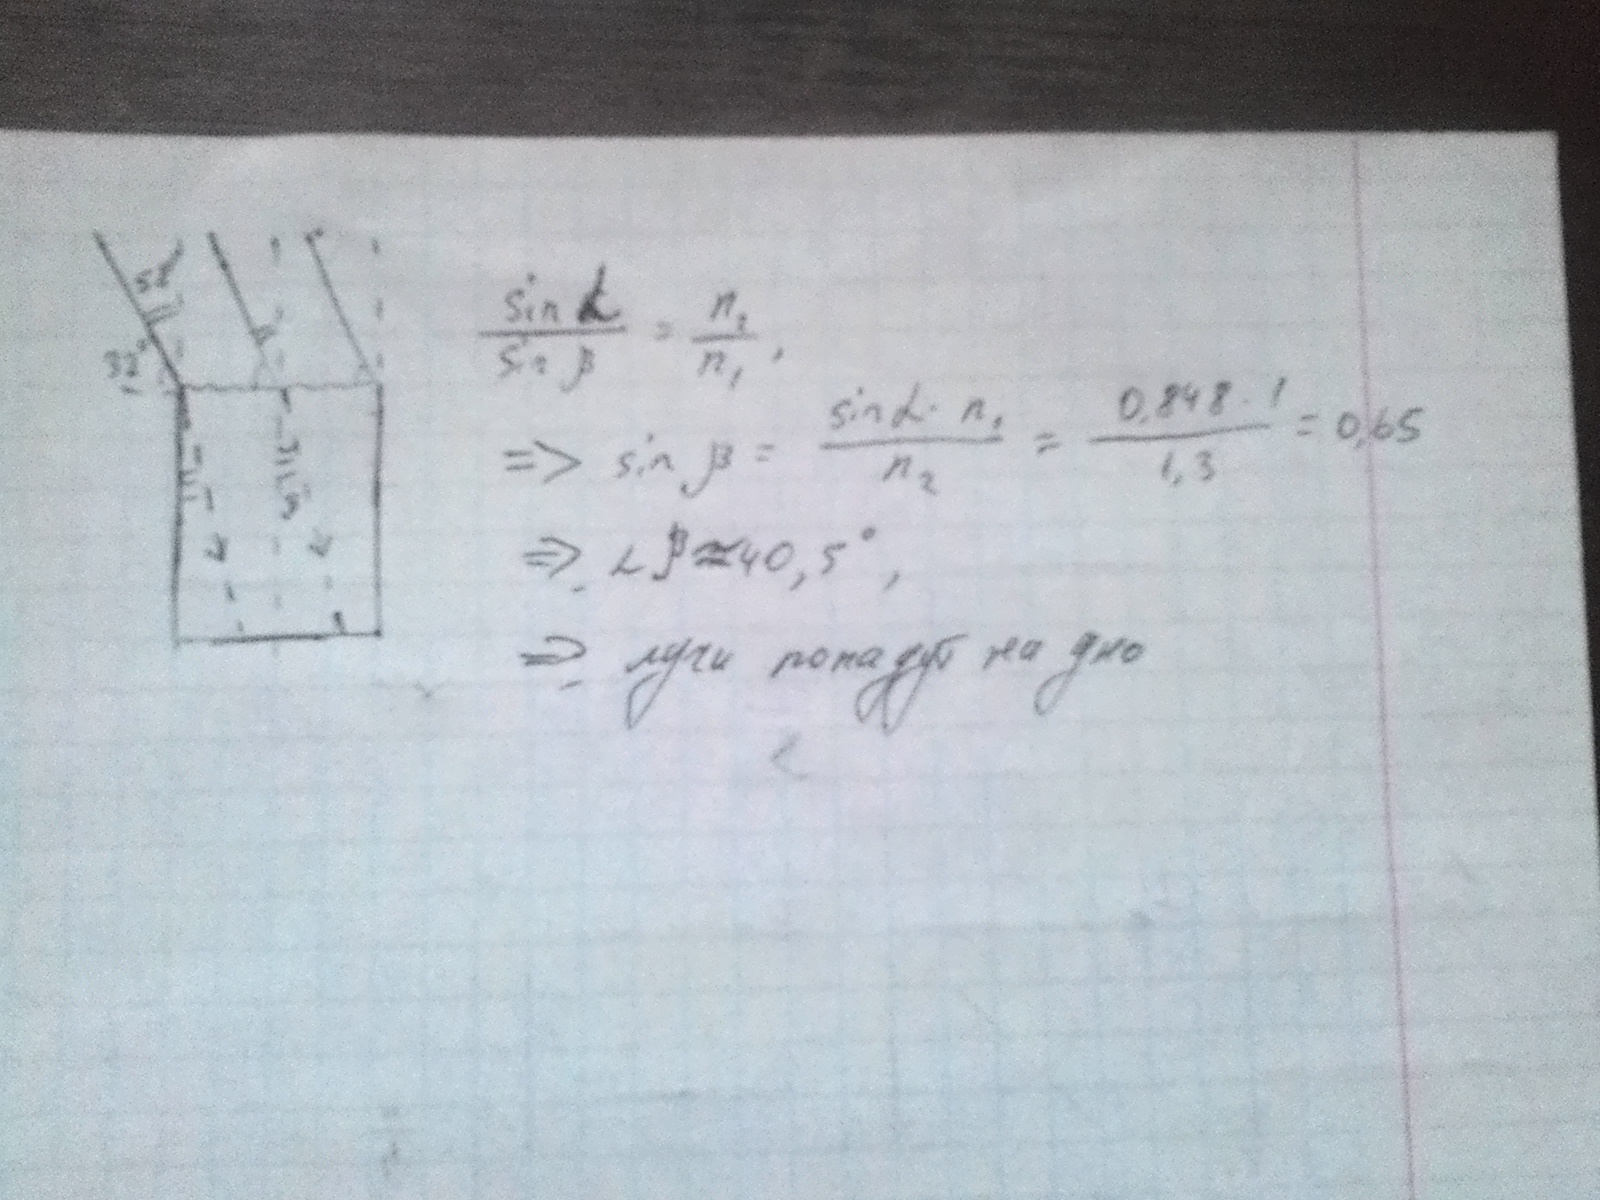 58°
32°
sin α / sin β = n₂ / n₁ ,
=> sin β = sin α · n₁ / n₂ = 0,848 · 1 / 1,3 = 0,65
=> ∠β ≈ 40,5° ,
=> лучи попадут на дно